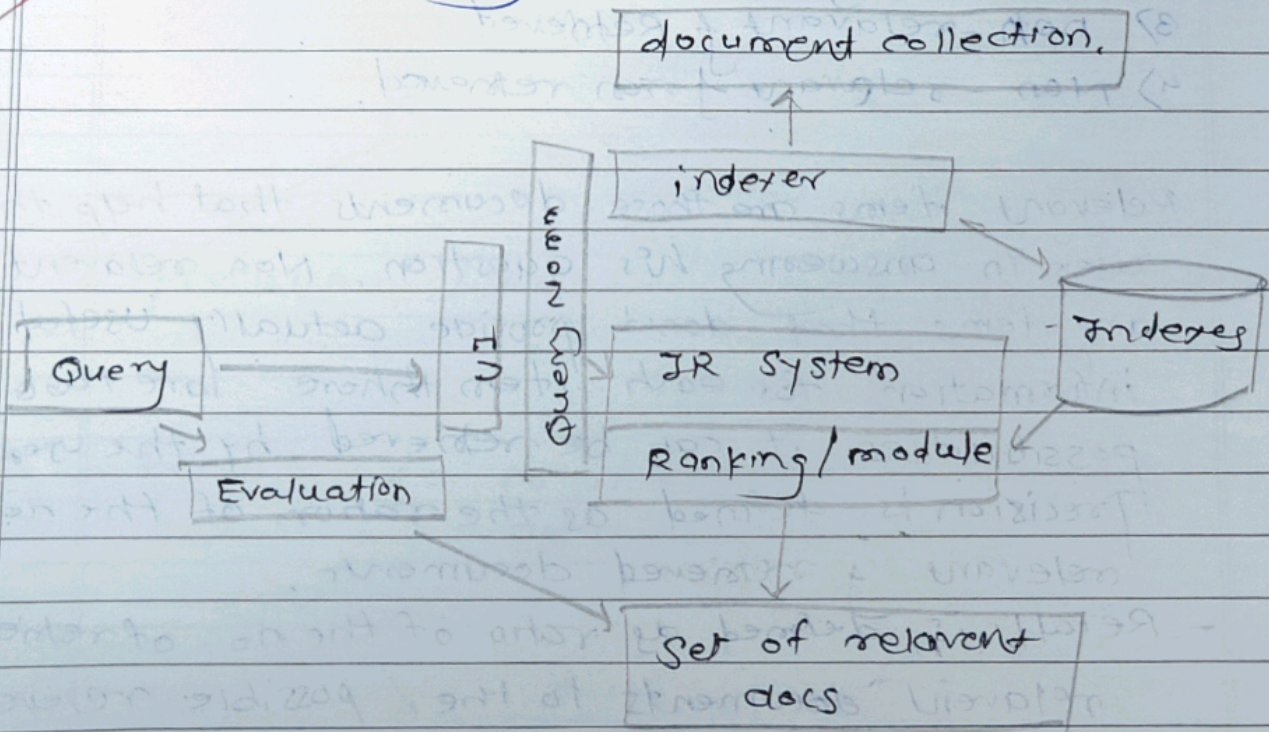 document collection.
indexer
Indexes
Query
UI
IR System
Ranking/module
Evaluation
Set of relavent
docs